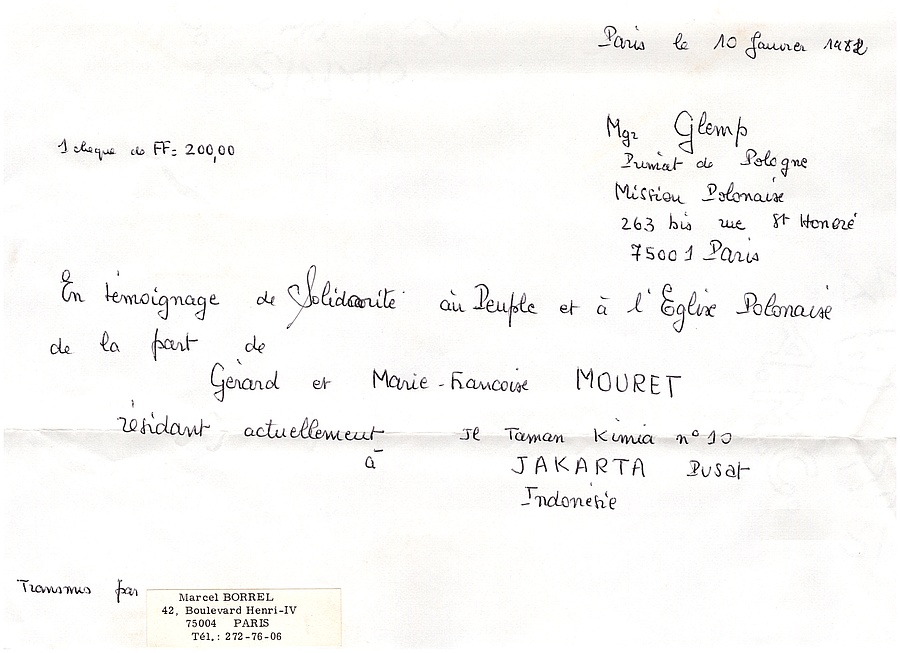 Paris le 10 Janvier 1982
Mgr Glemp
Primat de Pologne
Mission Polonaise
263 bis rue St Honoré
75001 Paris
1 cheque de FF: 200,00
En témoignage de Solidarité au Peuple et à l'Eglise Polonaise
de la part de
Gérard et Marie-Francoise MOURET
résidant actuellement Jl Taman Kimia n° 10
à JAKARTA Pusat
Indonésie
Transmis par
Marcel BORREL
42, Boulevard Henri-IV
75004 PARIS
Tél.: 272-76-06